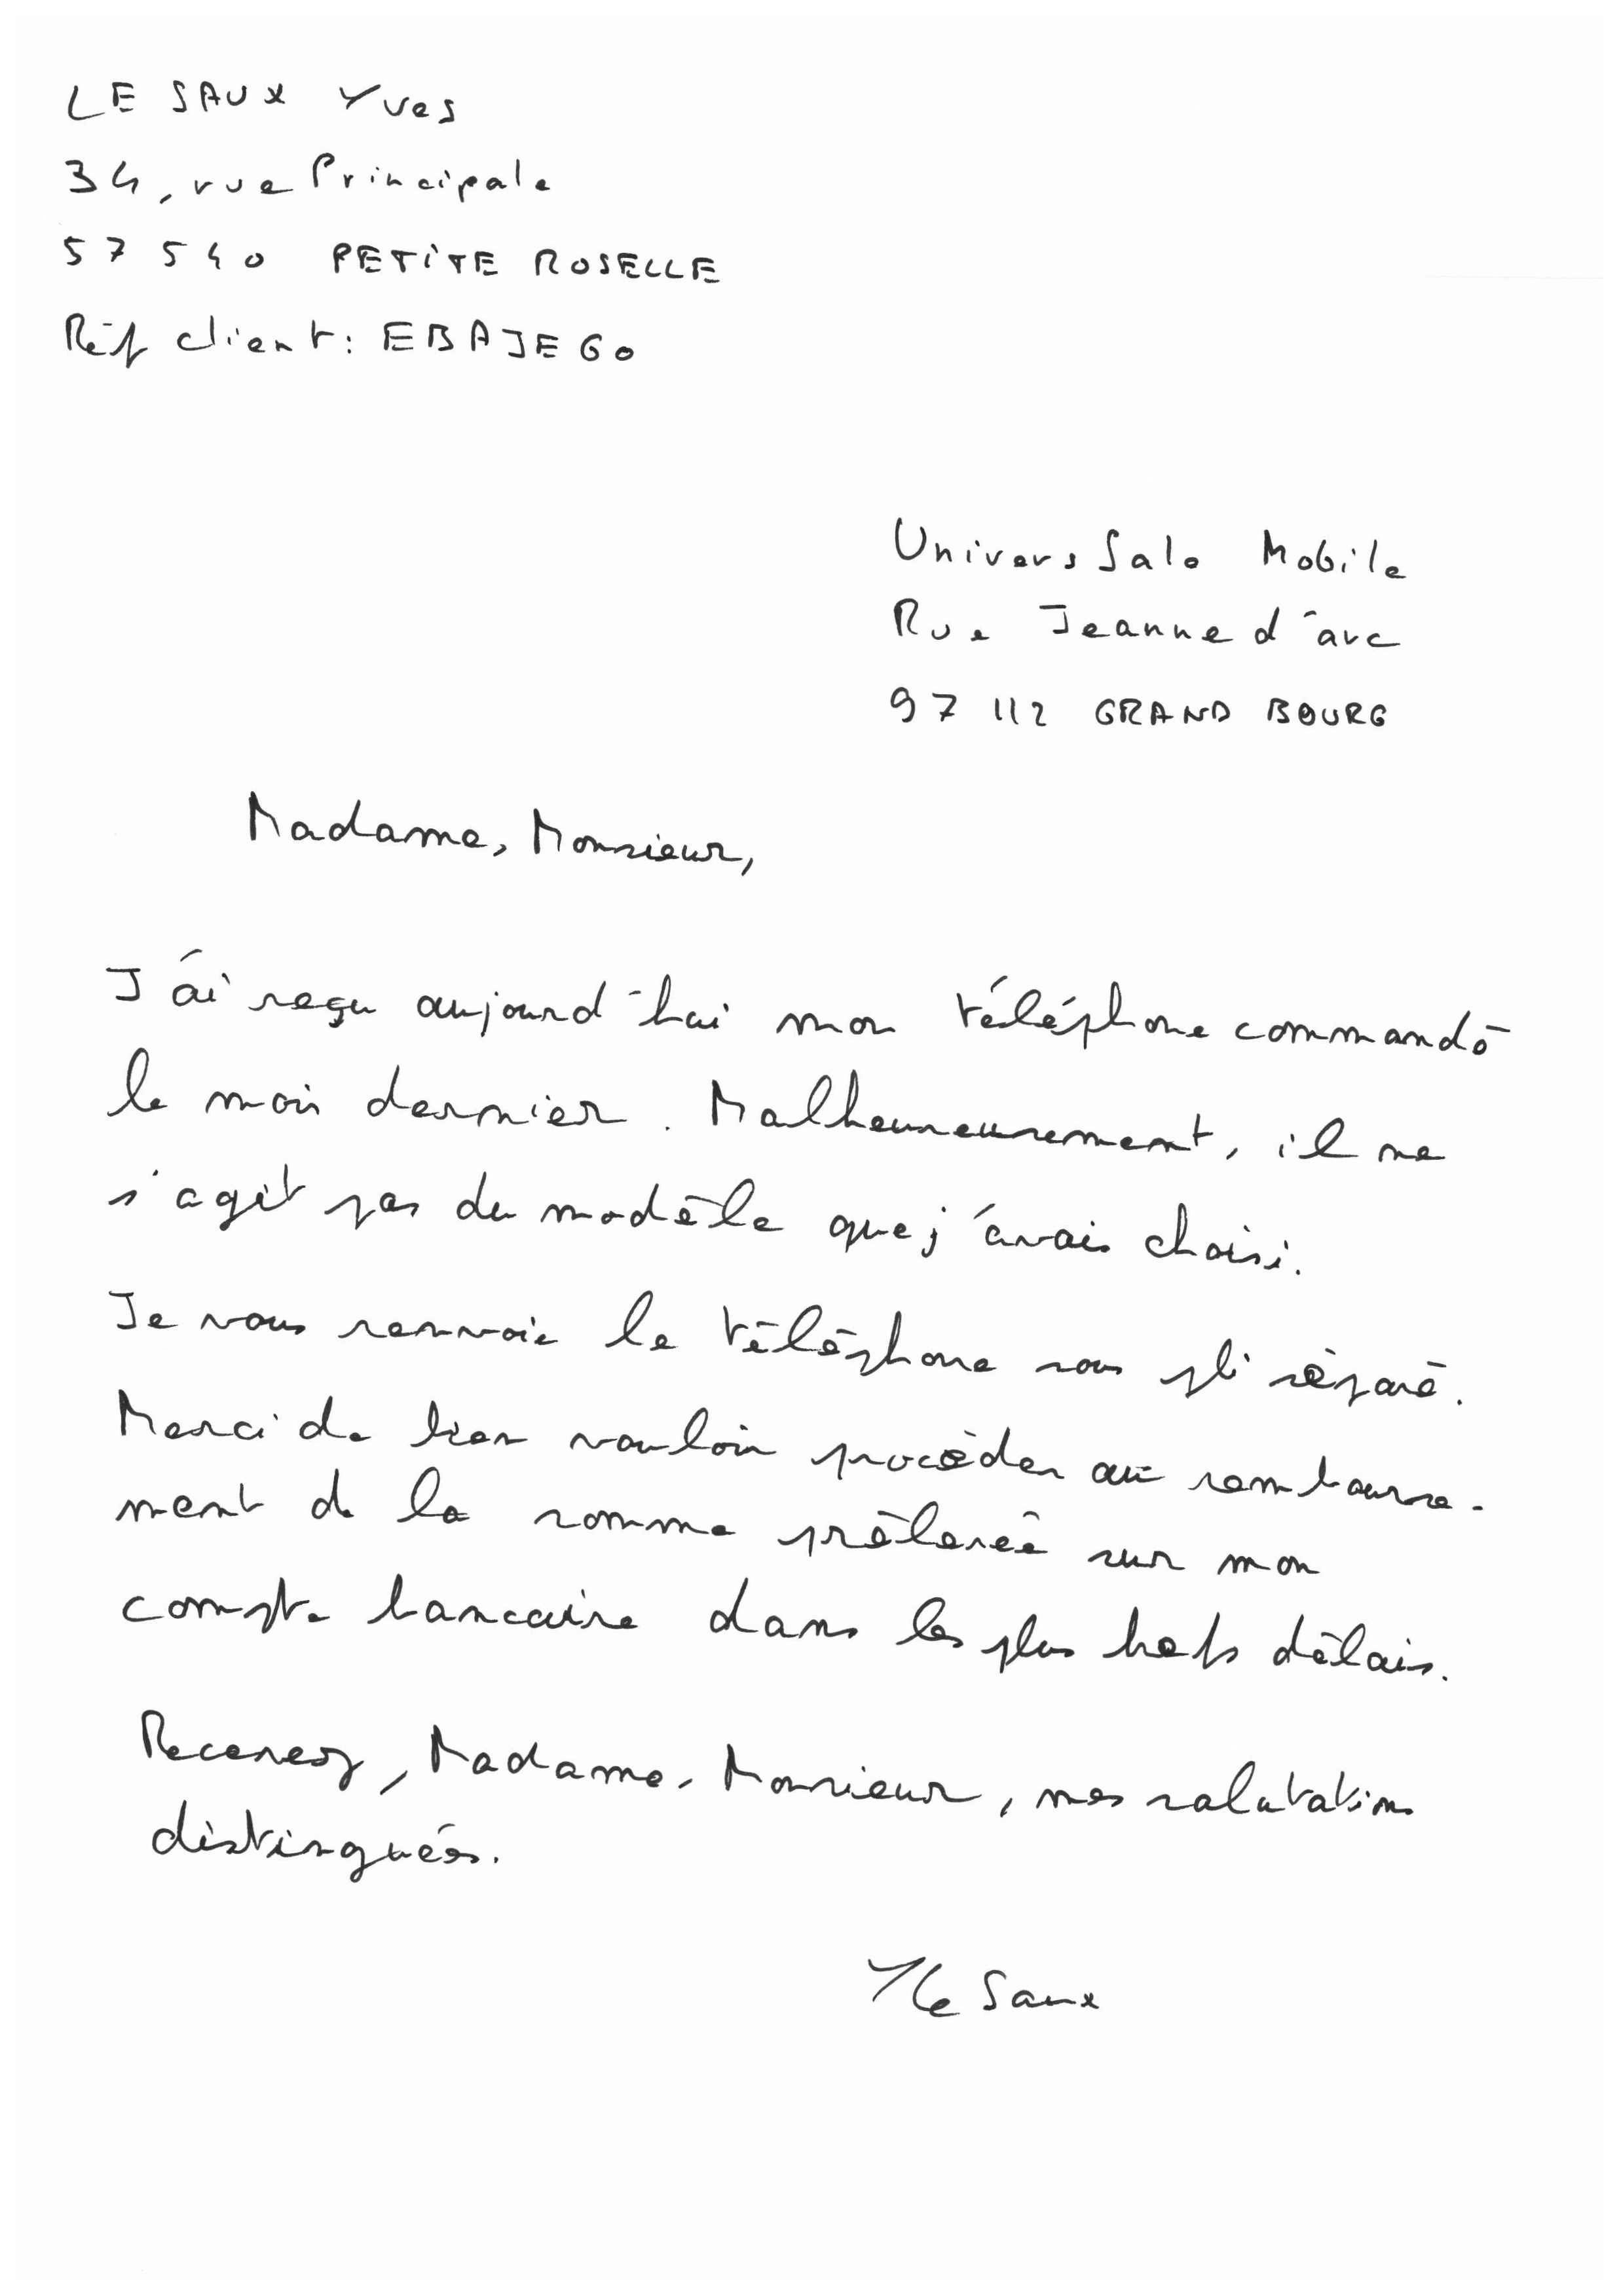 LE SAUX Yves
34, rue Principale
57540 PETITE ROSELLE
Réf client : EBAJE60
Univers Salo Mobile
Rue Jeanne d'arc
97112 GRAND BOURG
Madame, Monsieur,
J'ai reçu aujourd'hui mon téléphone commandé
le mois dernier. Malheureusement, il ne
s'agit pas du modèle que j'avais choisi.
Je vous renvoie le téléphone sous pli séparé.
Merci de bien vouloir procéder au rembourse-
ment de la somme prélevée sur mon
compte bancaire dans les plus brefs délais.
Recevez, Madame, Monsieur, mes salutations
distinguées.
Y Le Saux